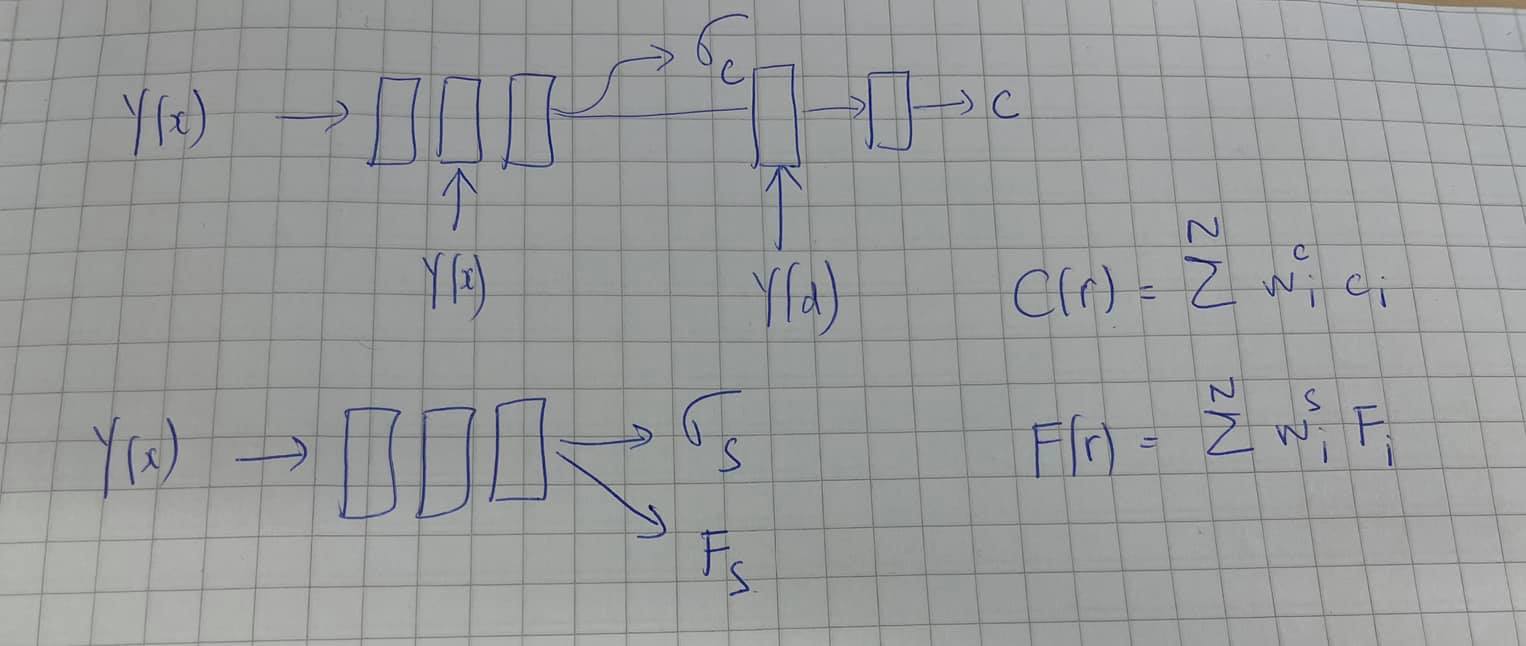 Y(x) → → σ_c
→ → c
Y(x) Y(d)
C(r) = Σ^N w_i^c c_i
Y(x) → → σ_s
F_s
F(r) = Σ^N w_i^s F_i